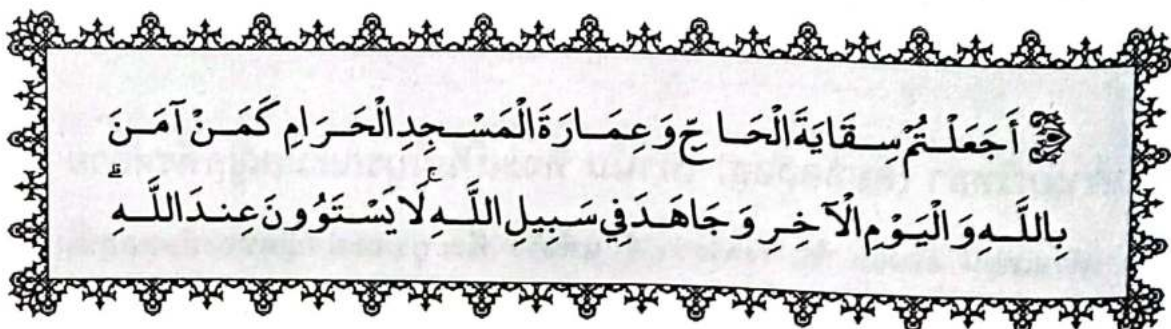 أَجَعَلْتُمْ سِقَايَةَ الْحَاجِّ وَعِمَارَةَ الْمَسْجِدِ الْحَرَامِ كَمَنْ آمَنَ
بِاللَّهِ وَالْيَوْمِ الْآخِرِ وَجَاهَدَ فِي سَبِيلِ اللَّهِ ۚ لَا يَسْتَوُونَ عِندَ اللَّهِ ۗ